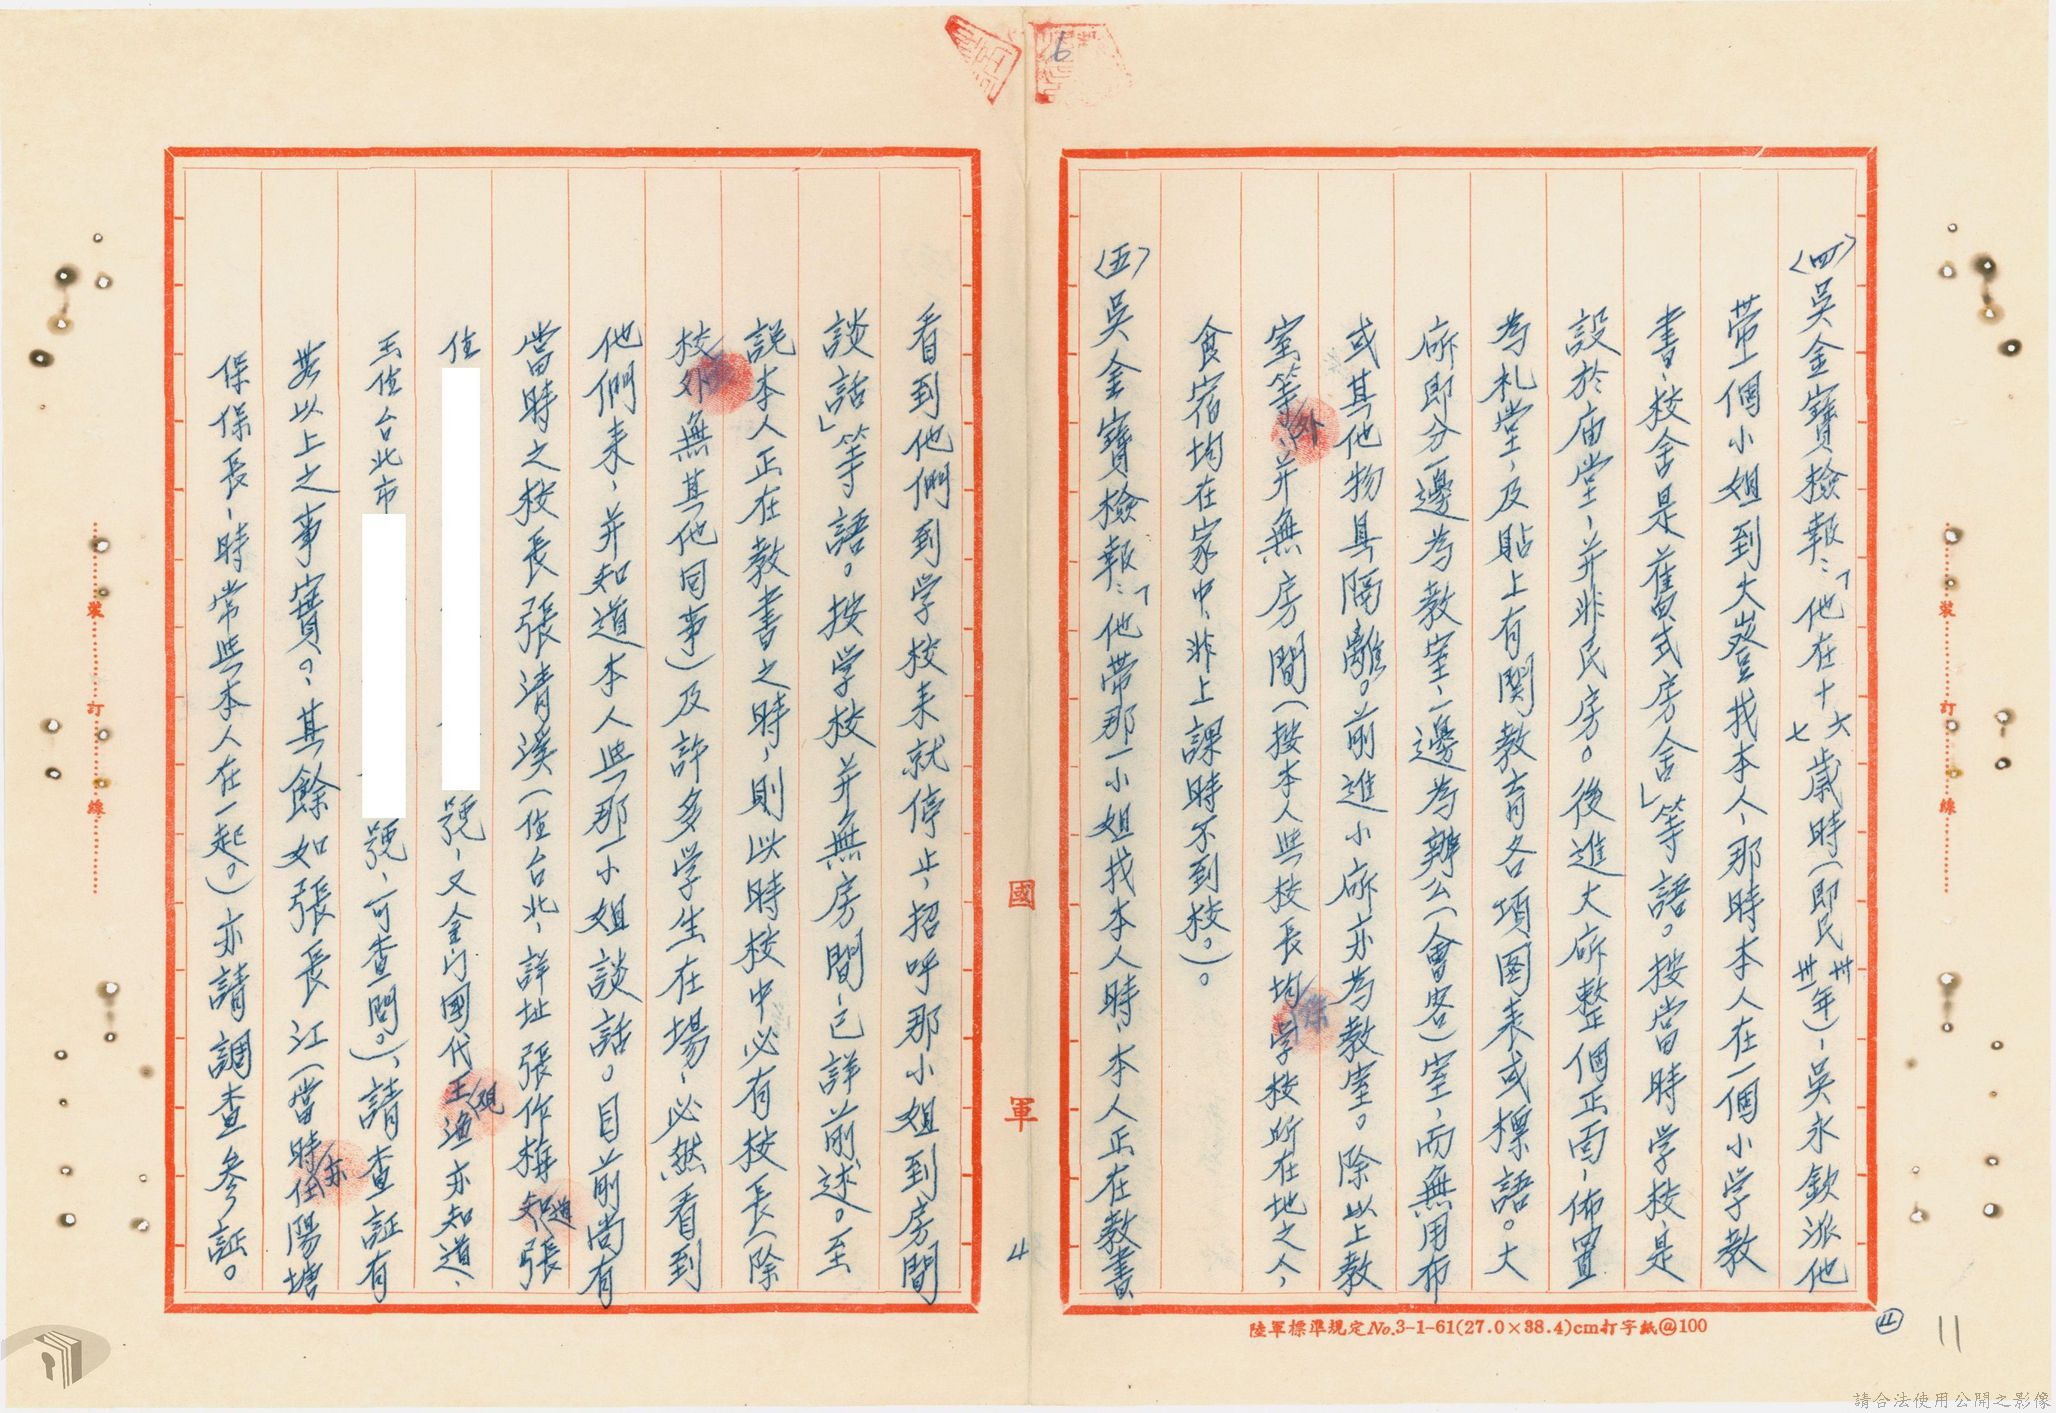 〈四〉吳金寶檢報：「他在十六七歲時（即民卅卅一年）、吳永欽派他
帶一個小姐到大嶝找本人、那時本人在一個小学教
書、校舍是舊式房舍」等語。按當時学校、是
設於庙堂、并非民房。後進大厛整個正面、佈置
為礼堂、及貼上有関教育各項图表或標語。大
厛即分一邊為教室、一邊為辦公（會客）室、而無用布
或其他物具隔離。前進小厛亦為教室。除以上教
室等外、并無房間（按本人與校長均係学校所在地之人，
食宿均在家中、非上課時不到校。）。
〈五〉吳金寶檢報：「他带那一小姐找本人時、本人正在教書、
看到他們到学校来就停止、招呼那小姐到房間
談話」等語。按学校并無房間、已詳前述。至
説本人正在教書之時、則此時校中必有校長（除
校外無其他同事）及許多学生在場、必然看到
他們来、并知道本人與那一小姐談話。目前尚有
當時之校長張清溪（住台北、詳址張作梅知道張
住
號、又金门國代王漁硯亦知道、
王住台北市
號、可查問。）、請查証有
無以上之事實？、其餘如張長江（當時亦住陽塘
保保長、時常與本人在一起。）亦請調查參証。
國軍
4
6
11
裝訂線
裝訂線
陸軍標準規定No.3-1-61(27.0×38.4)cm打字紙@100
請合法使用公開之影像